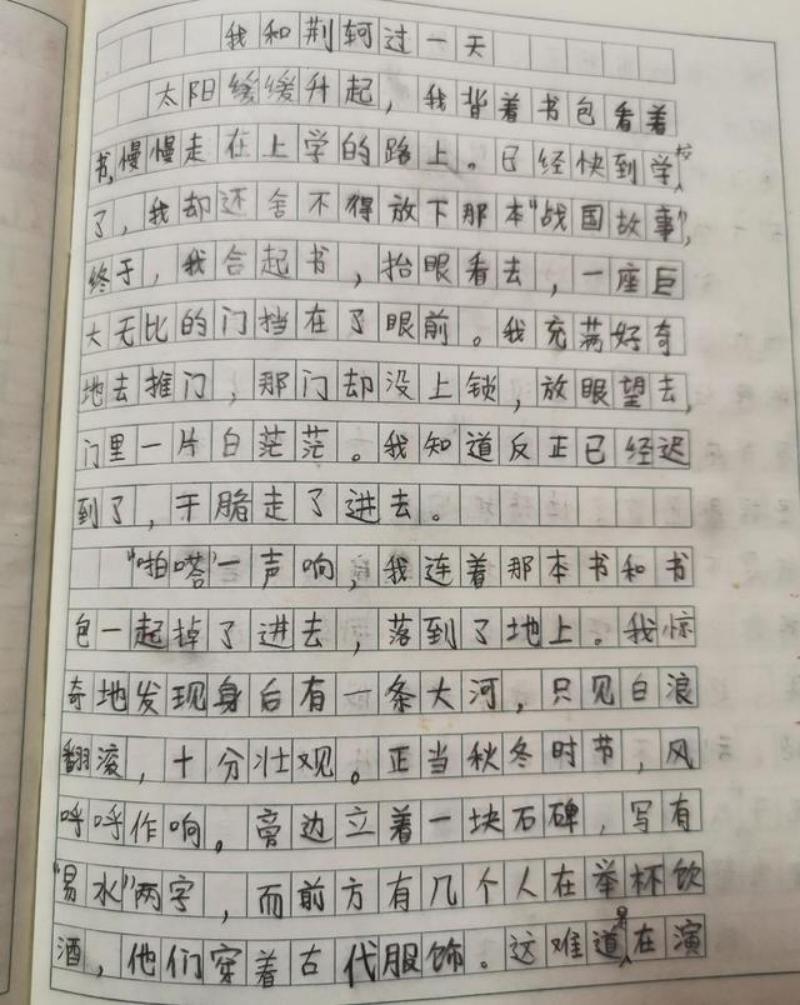 我和荆轲过一天
太阳缓缓升起，我背着书包看着
书，慢慢走在上学的路上。已经快到学校
了，我却还舍不得放下那本“战国故事”，
终于，我合起书，抬眼看去，一座巨
大无比的门挡在了眼前。我充满好奇
地去推门，那门却没上锁，放眼望去，
门里一片白茫茫。我知道反正已经迟
到了，干脆走了进去。
“啪嗒”一声响，我连着那本书和书
包一起掉了进去，落到了地上。我惊
奇地发现身后有一条大河，只见白浪
翻滚，十分壮观。正当秋冬时节，风
呼呼作响。旁边立着一块石碑，写有
“易水”两字，而前方有几个人在举杯饮
酒，他们穿着古代服饰。这难道是在演